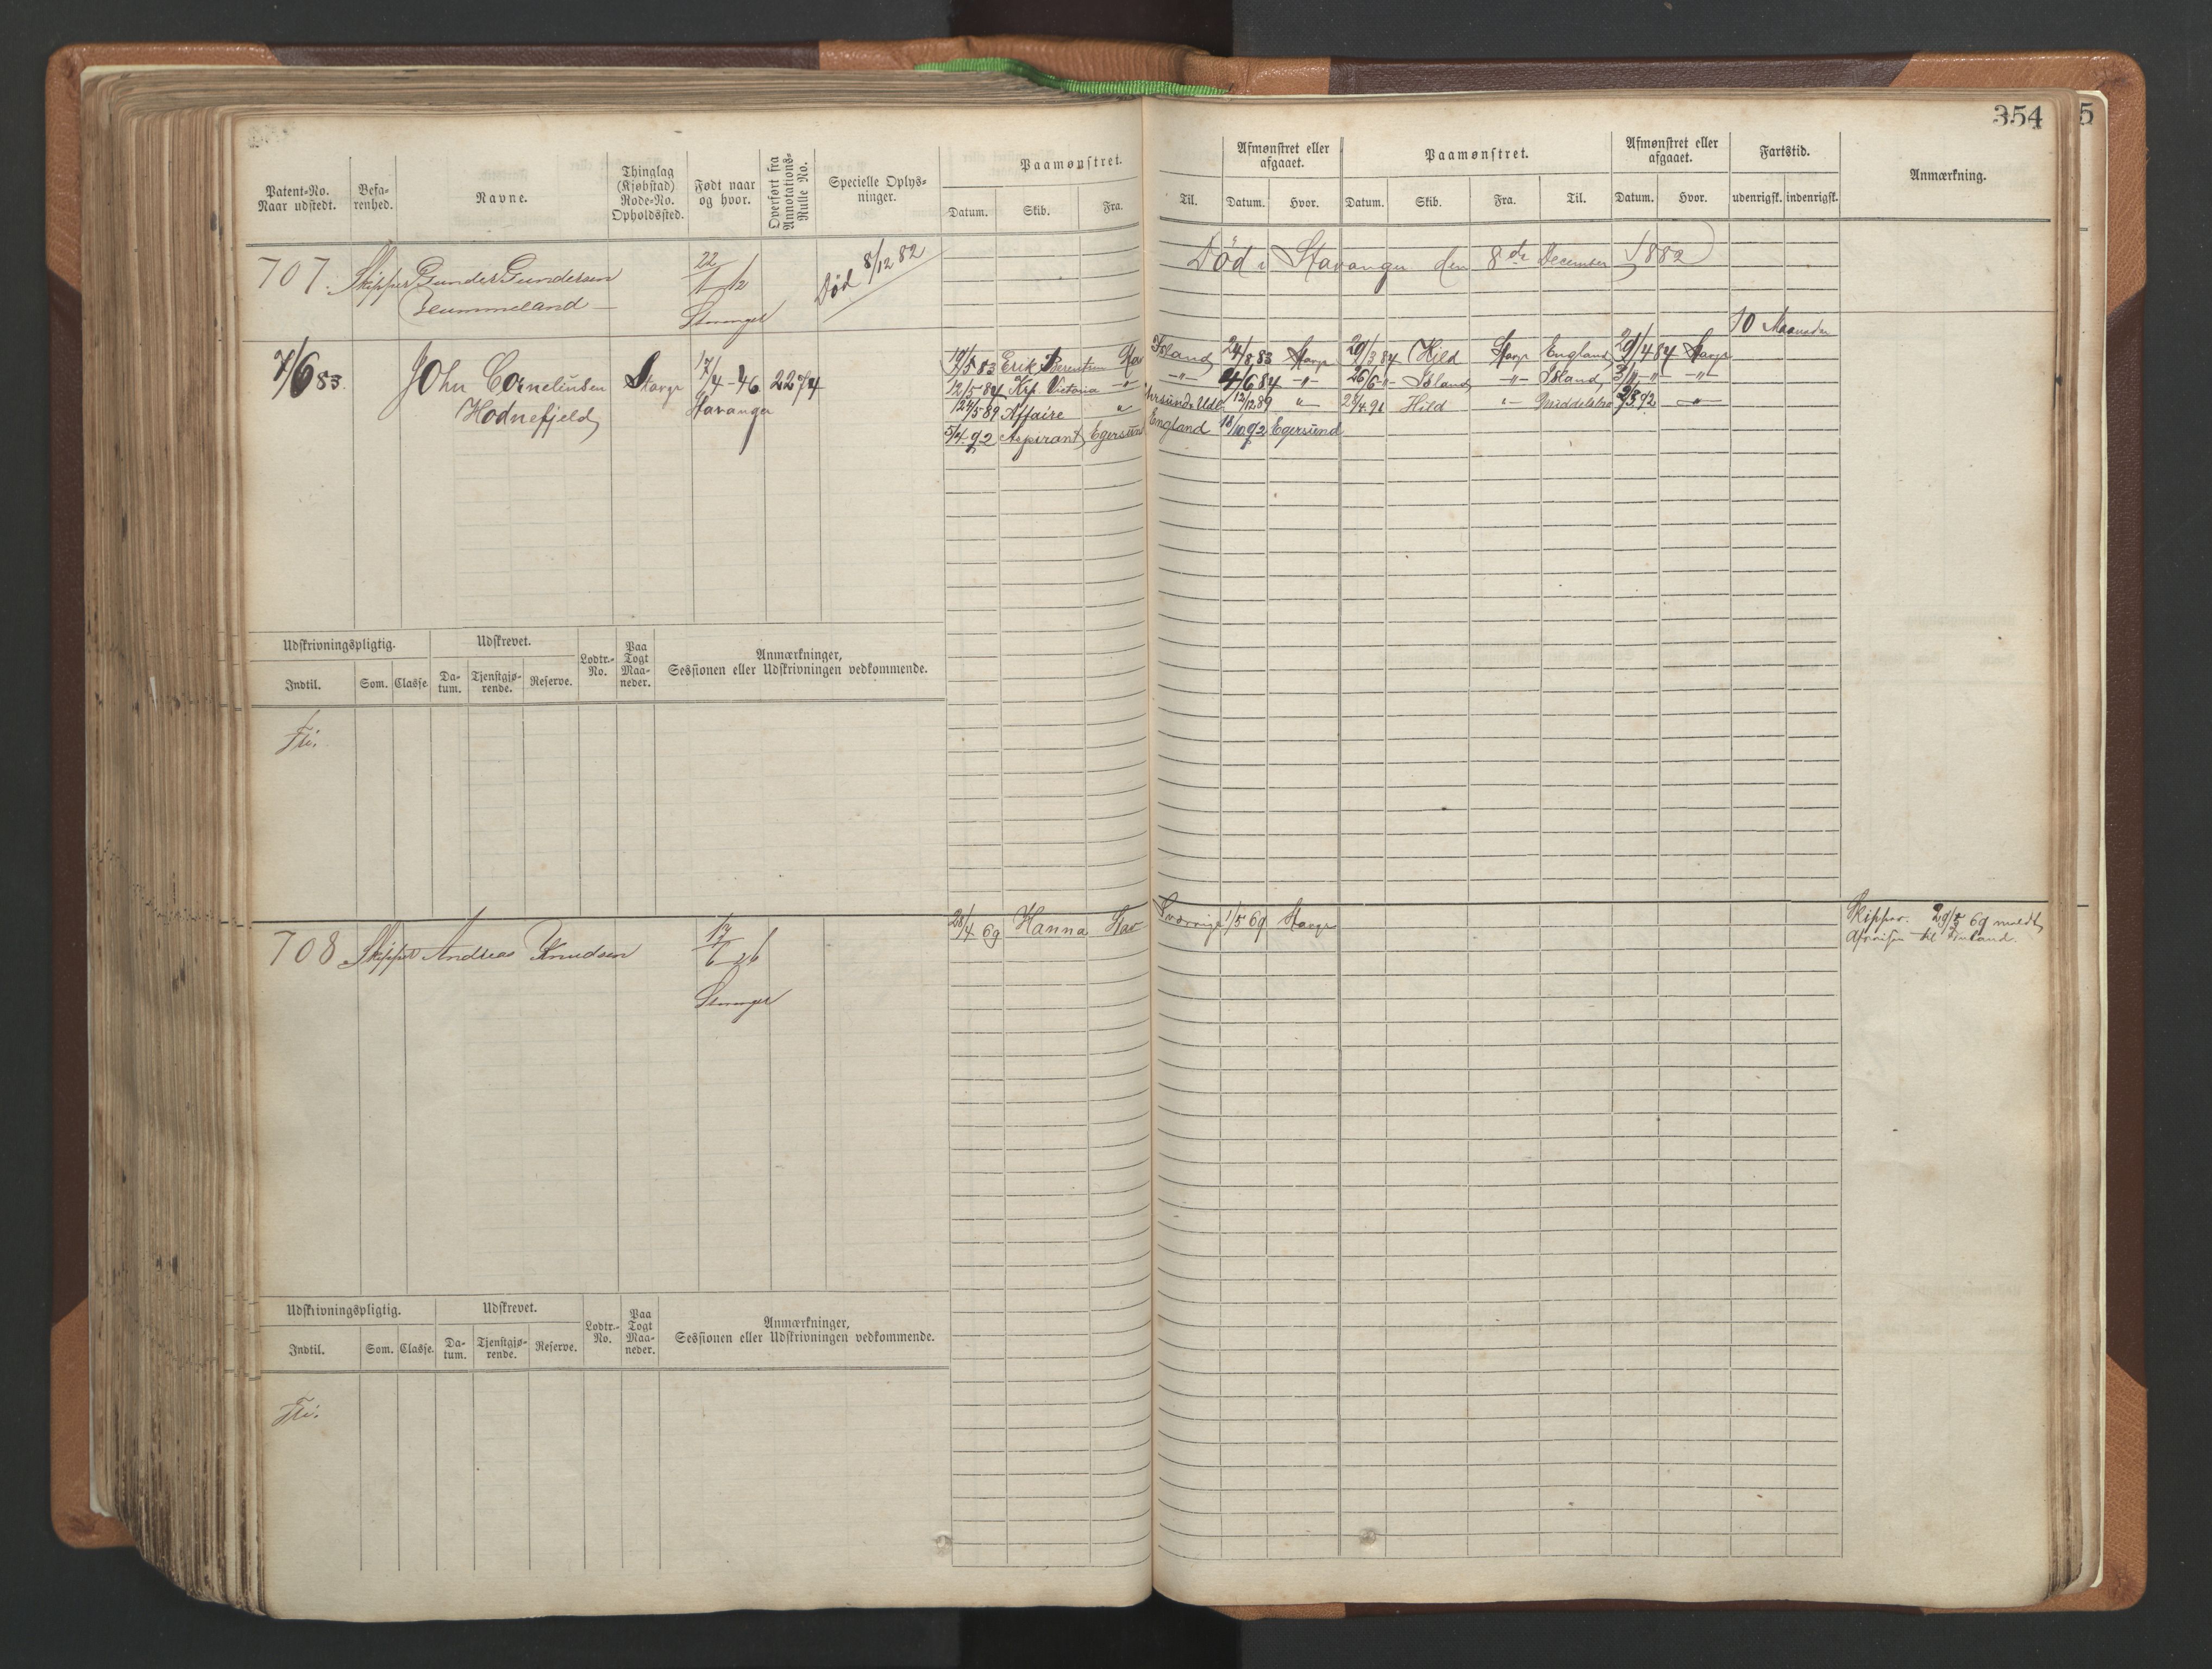 354 5
Patent-No. Naar udstedt. Befa-renhed. Navne. Thinglag (Kjøbstad) Rode-No. Opholdssted. Født naar og hvor. Overført fra Annotations-Rulle No. Specielle Oplys-ninger. Paamønstret. Datum. Skib. Fra. Til. Afmønstret eller afgaaet. Datum. Hvor. Paamønstret. Datum. Skib. Fra. Til. Afmønstret eller afgaaet. Datum. Hvor. Fartstid. udenrigsk. indenrigsk. Anmærkning.
707. Skipper Gunder Gundersen 22/1 12 Død 8/12 82 Død i Stavanger den 8de December 1882
Stavanger
10 Maaneder
7/6 83. John Corneliusen Stavgr 17/4-46 2274 19/5 83 Erik Berentsen Stav Island 24/8 83 Stavgr 29/3 84 Hild Stavgr England 29/4 84 Stavgr
Hodnefjeld Stavanger 12/5 84 Krp. Victoria -"- -"- 4/6 84 -"- 26/6 -"- Island -"- Island 3/11 -"- -"-
12/5 89 Affaire " 12/12 89 " Hild "
5/4 92 Aspirant Egersund England 18/10 92 Egersund
Udskrivningspligtig. Udskrevet. Lodtr.-No. Paa Togt Maa-neder. Anmærkninger, Sessionen eller Udskrivningen vedkommende.
Indtil. Som. Classe Da-tum. Tjenstgjø-rende. Reserve.
Fri.
708 Skipper Andreas Knudsen 17/6 26 28/4 69 Hanna Stav Sverrige 1/5 69 Stavgr Skipper. 29/5 69 meldt
Afreisen til
Stavanger
Udskrivningspligtig. Udskrevet. Lodtr.-No. Paa Togt Maa-neder. Anmærkninger, Sessionen eller Udskrivningen vedkommende.
Indtil. Som. Classe. Da-tum. Tjenstgjø-rende. Reserve.
Fri.